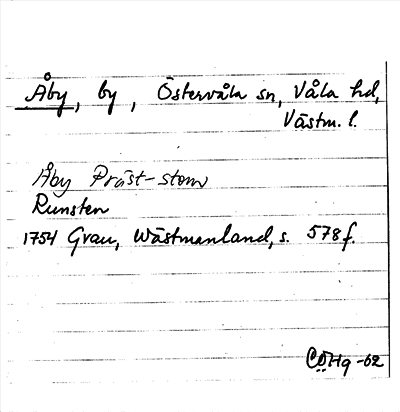 Åby, by, Östervåla sn, Våla hd,
Västm. l.
Åby Präst-stom
Runsten
1754 Grau, Wästmanland, s. 578 f.
CÖHg -62